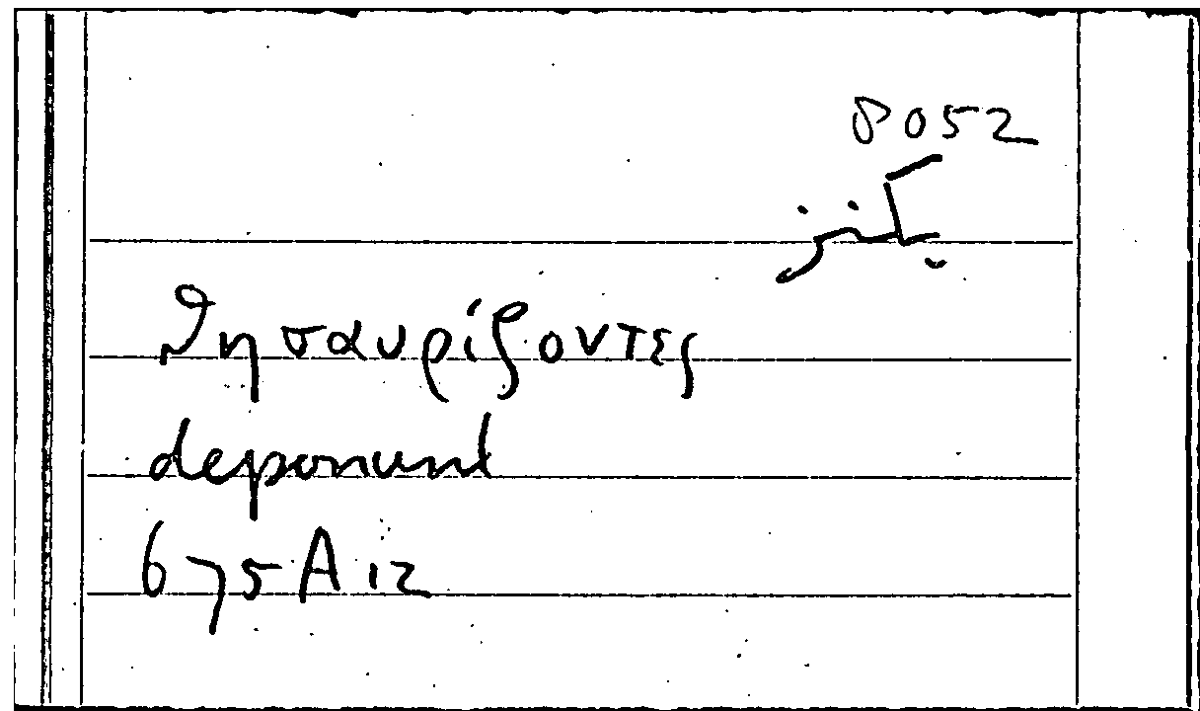 8052
يكنز
θησαυρίζοντες
deponunt
675 A 12